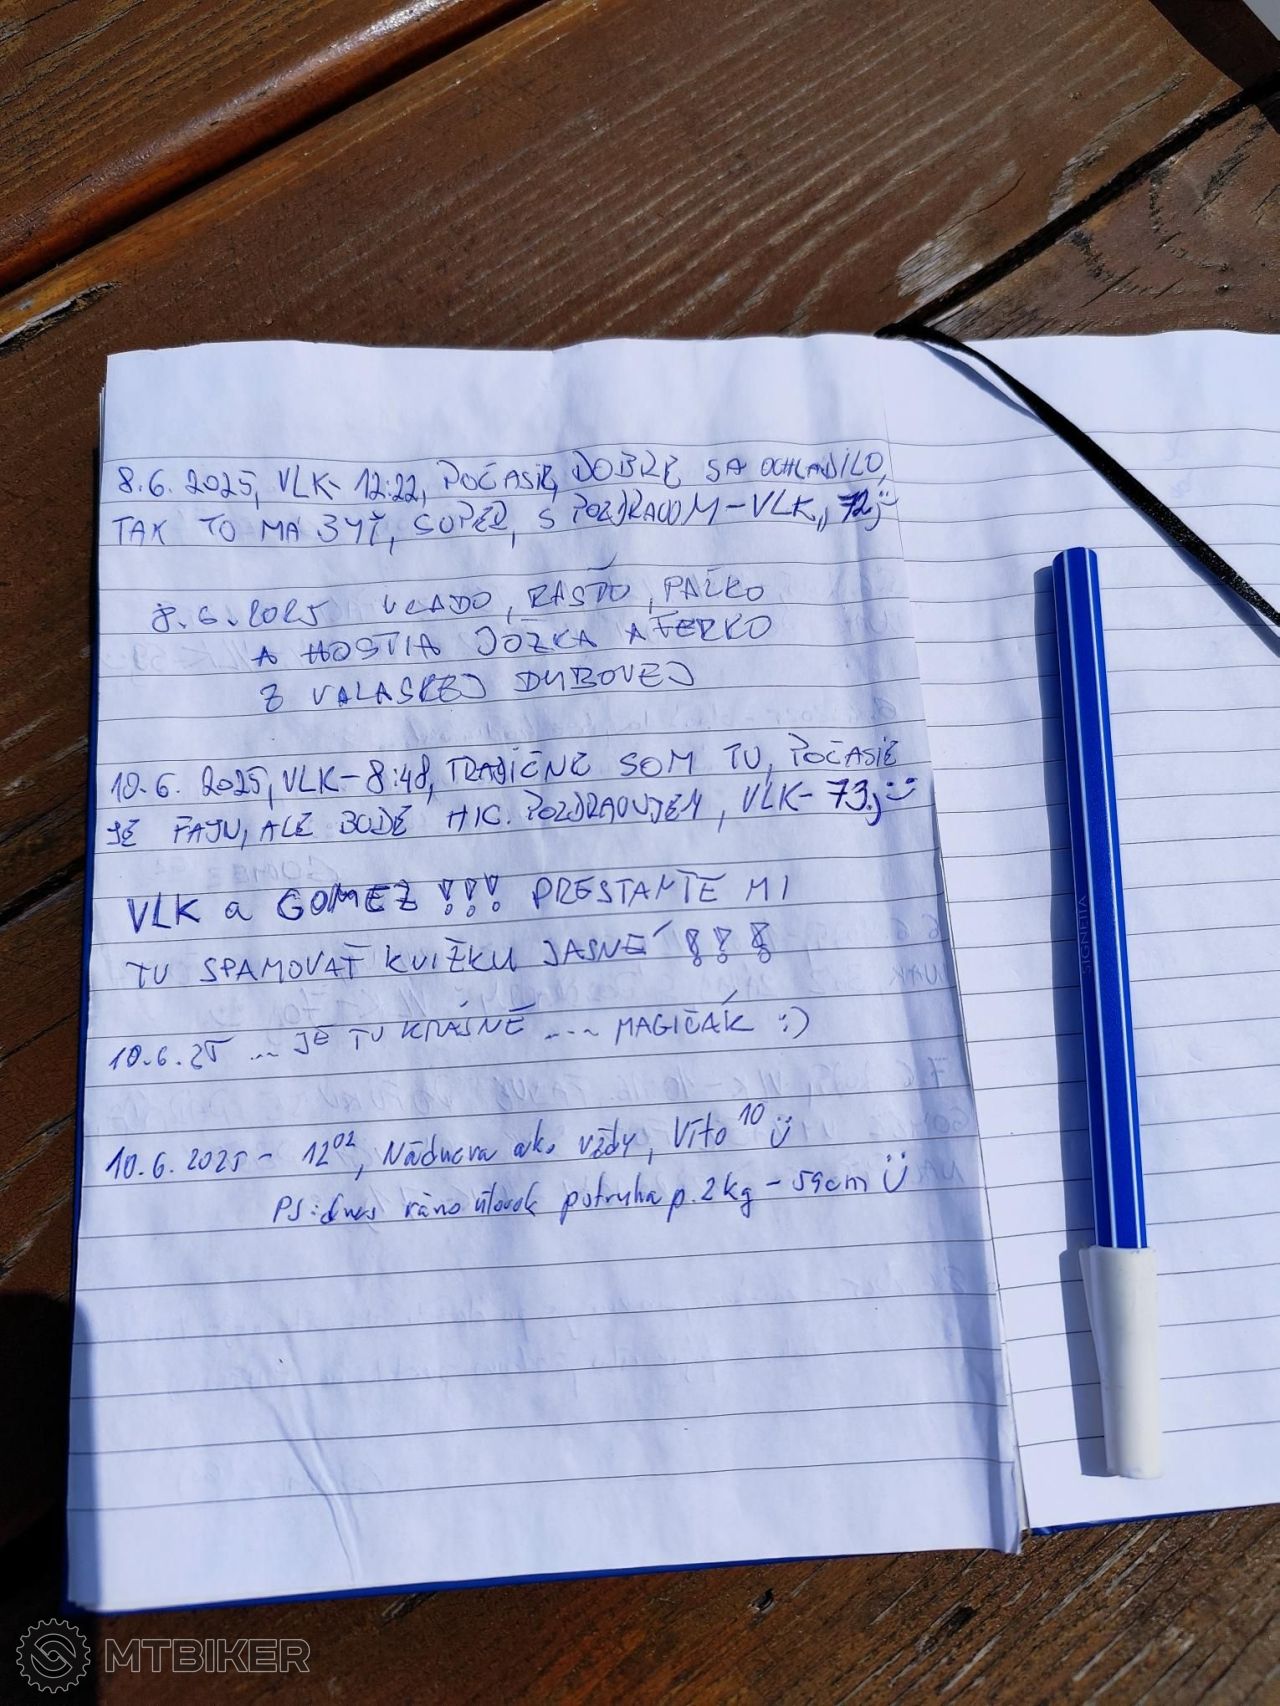 8.6. 2025, VLK- 12:22, POČASIE, DOBRE SA OCHLADILO,
TAK TO MA BYŤ, SUPER, S POZDRAVOM - VLK,, 72,,
8.6.2025 VLADO, RASŤO, PAĽKO
A HOSTIA JOŽKA A FERKO
Z VALASKEJ DUBOVEJ
10.6. 2025, VLK- 8:48, TRADIČNE SOM TU, POČASIE
JE FAJN, ALE BUDE HIC. POZDRAVUJEM, VLK- 73.,
VLK a GOMEZ !!! PRESTAŇTE MI
TU SPAMOVAŤ KNIŽKU JASNÉ !!!
10.6.25 ... JE TU KRÁSNE .... MAGIČÁK :)
10.6.2025 - 12⁰², Nádhera ako vždy, Víťo 10
PS: dnes ráno úlovok pstruha p. 2 kg - 59cm
SIGNETTA
MTBIKER